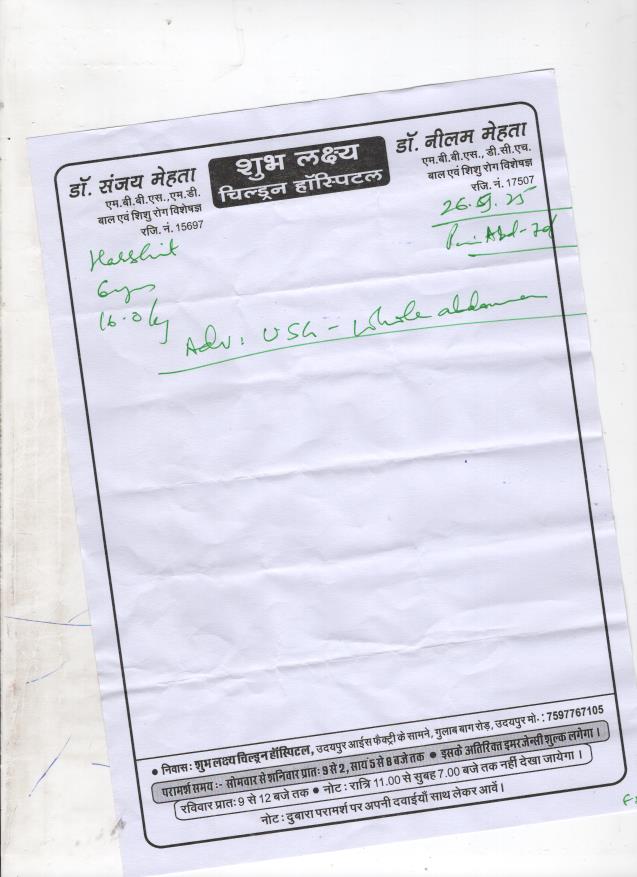 शुभ लक्ष्य
चिल्ड्रन हॉस्पिटल
डॉ. संजय मेहता
एम.बी.बी.एस.,एम.डी.
बाल एवं शिशु रोग विशेषज्ञ
रजि. नं. 15697
डॉ. नीलम मेहता
एम.बी.बी.एस., डी.सी.एच.
बाल एवं शिशु रोग विशेषज्ञ
रजि. नं. 17507
Harshit
6yrs
16.0kg
Abd-7d
Adv: USG - Whole abdomen
• निवास : शुभ लक्ष्य चिल्ड्रन हॉस्पिटल, उदयपुर आईस फैक्ट्री के सामने, गुलाब बाग रोड़, उदयपुर मो. : 7597767105
परामर्श समय :- सोमवार से शनिवार प्रातः 9 से 2, सायं 5 से 8 बजे तक • इसके अतिरिक्त इमरजेन्सी शुल्क लगेगा ।
रविवार प्रातः 9 से 12 बजे तक • नोट : रात्रि 11.00 से सुबह 7.00 बजे तक नहीं देखा जायेगा ।
नोट : दुबारा परामर्श पर अपनी दवाईयाँ साथ लेकर आवें ।